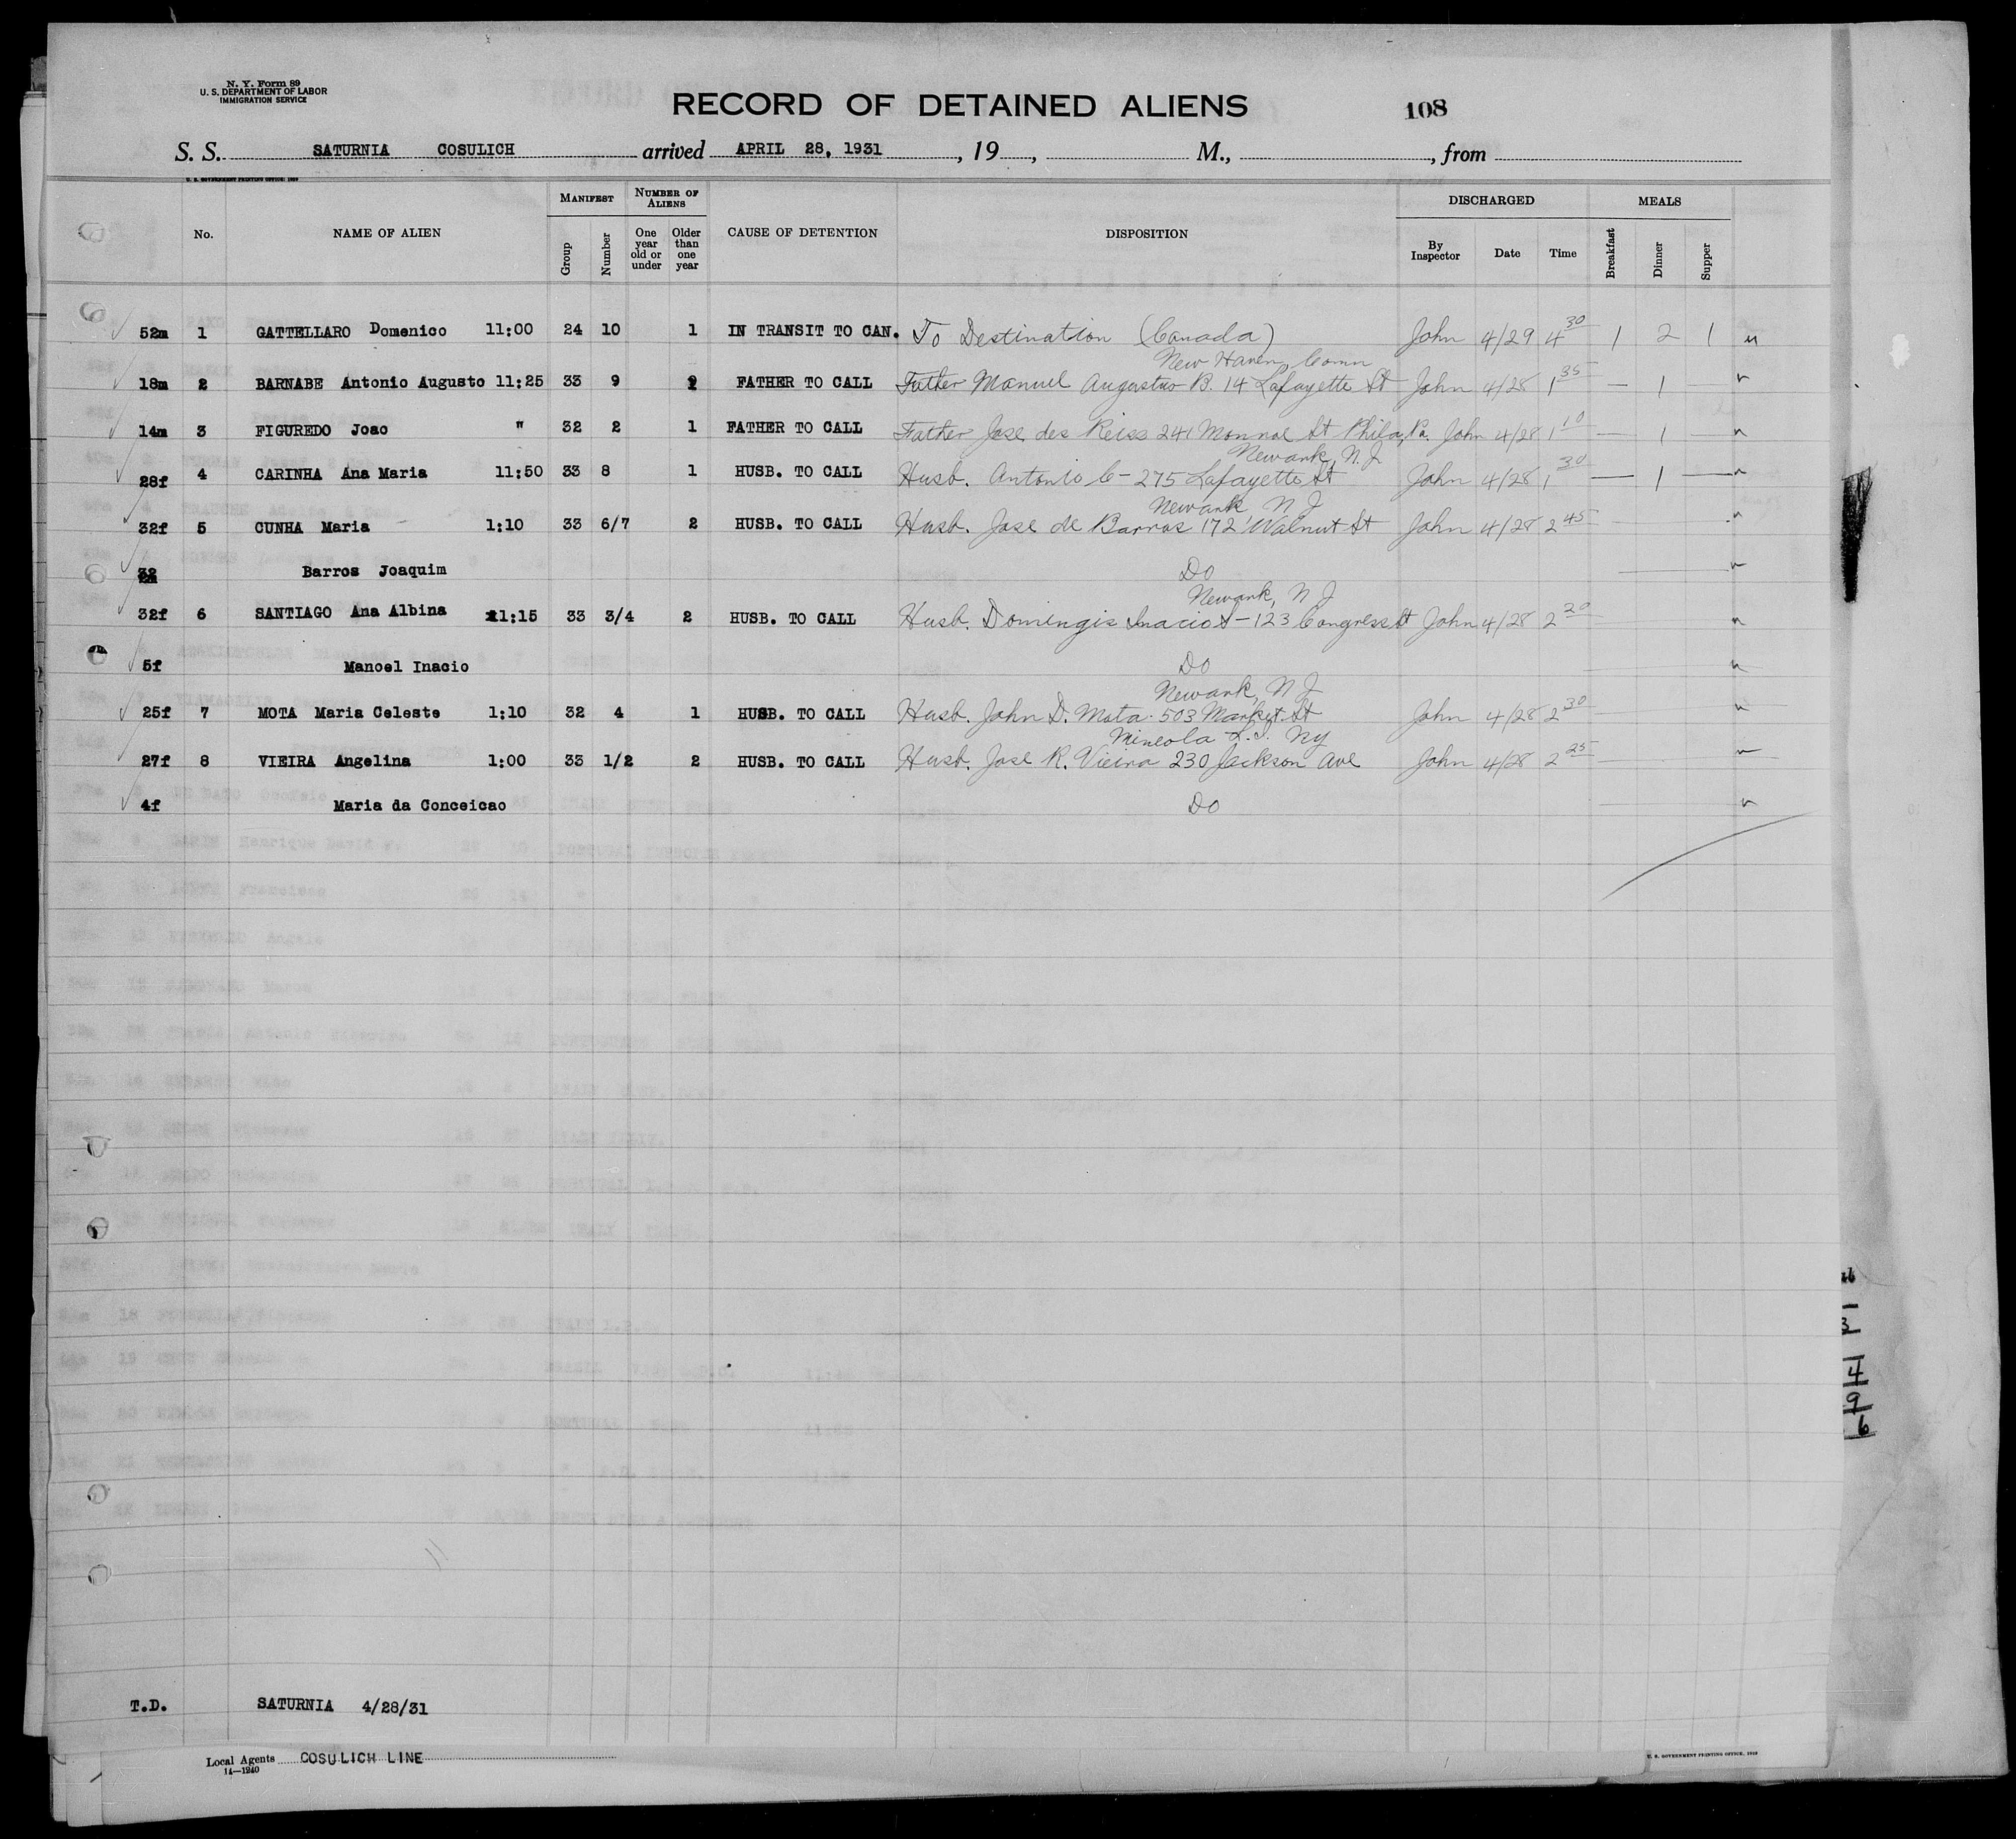 N. Y. Form 89
U. S. DEPARTMENT OF LABOR
IMMIGRATION SERVICE
RECORD OF DETAINED ALIENS 108
S. S. SATURNIA COSULICH arrived APRIL 28, 1931, 19 , M., , from
U. S. GOVERNMENT PRINTING OFFICE: 1929
No. NAME OF ALIEN MANIFEST Group Number NUMBER OF ALIENS One year old or under Older than one year CAUSE OF DETENTION DISPOSITION DISCHARGED By Inspector Date Time MEALS Breakfast Dinner Supper
52m 1 GATTELLARO Domenico 11:00 24 10 1 IN TRANSIT TO CAN. To Destination (Canada) John 4/29 4 30 1 2 1
New Haven, Conn
18m 2 BARNABE Antonio Augusto 11:25 33 9 1 FATHER TO CALL Father Manuel Augustus B. 14 Lafayette St John 4/28 1 35 — 1 —
14m 3 FIGUREDO Joao " 32 2 1 FATHER TO CALL Father Jose des Reiss 241 Monroe St Phila, Pa. John 4/28 1 10 — 1 —
Newark, N. J
28f 4 CARINHA Ana Maria 11:50 33 8 1 HUSB. TO CALL Husb. Antonio C - 275 Lafayette St John 4/28 1 30 — 1 —
Newark N J
32f 5 CUNHA Maria 1:10 33 6/7 2 HUSB. TO CALL Husb. Jose de Barros 172 Walnut St John 4/28 2 45
Barros Joaquim Do
Newark, N J
32f 6 SANTIAGO Ana Albina 11:15 33 3/4 2 HUSB. TO CALL Husb. Domingis Inacio S - 123 Congress St John 4/28 2 20
5f Manoel Inacio Do
Newark, N J
25f 7 MOTA Maria Celeste 1:10 32 4 1 HUSB. TO CALL Husb. John D. Mota 503 Market St John 4/28 2 30
Mineola L.I. NY
27f 8 VIEIRA Angelina 1:00 33 1/2 2 HUSB. TO CALL Husb. Jose R. Vieira 230 Jackson Ave John 4/28 2 25
4f Maria da Conceicao Do
3
4
9
6
T.D. SATURNIA 4/28/31
Local Agents COSULICH LINE
14—1240
U. S. GOVERNMENT PRINTING OFFICE, 1929